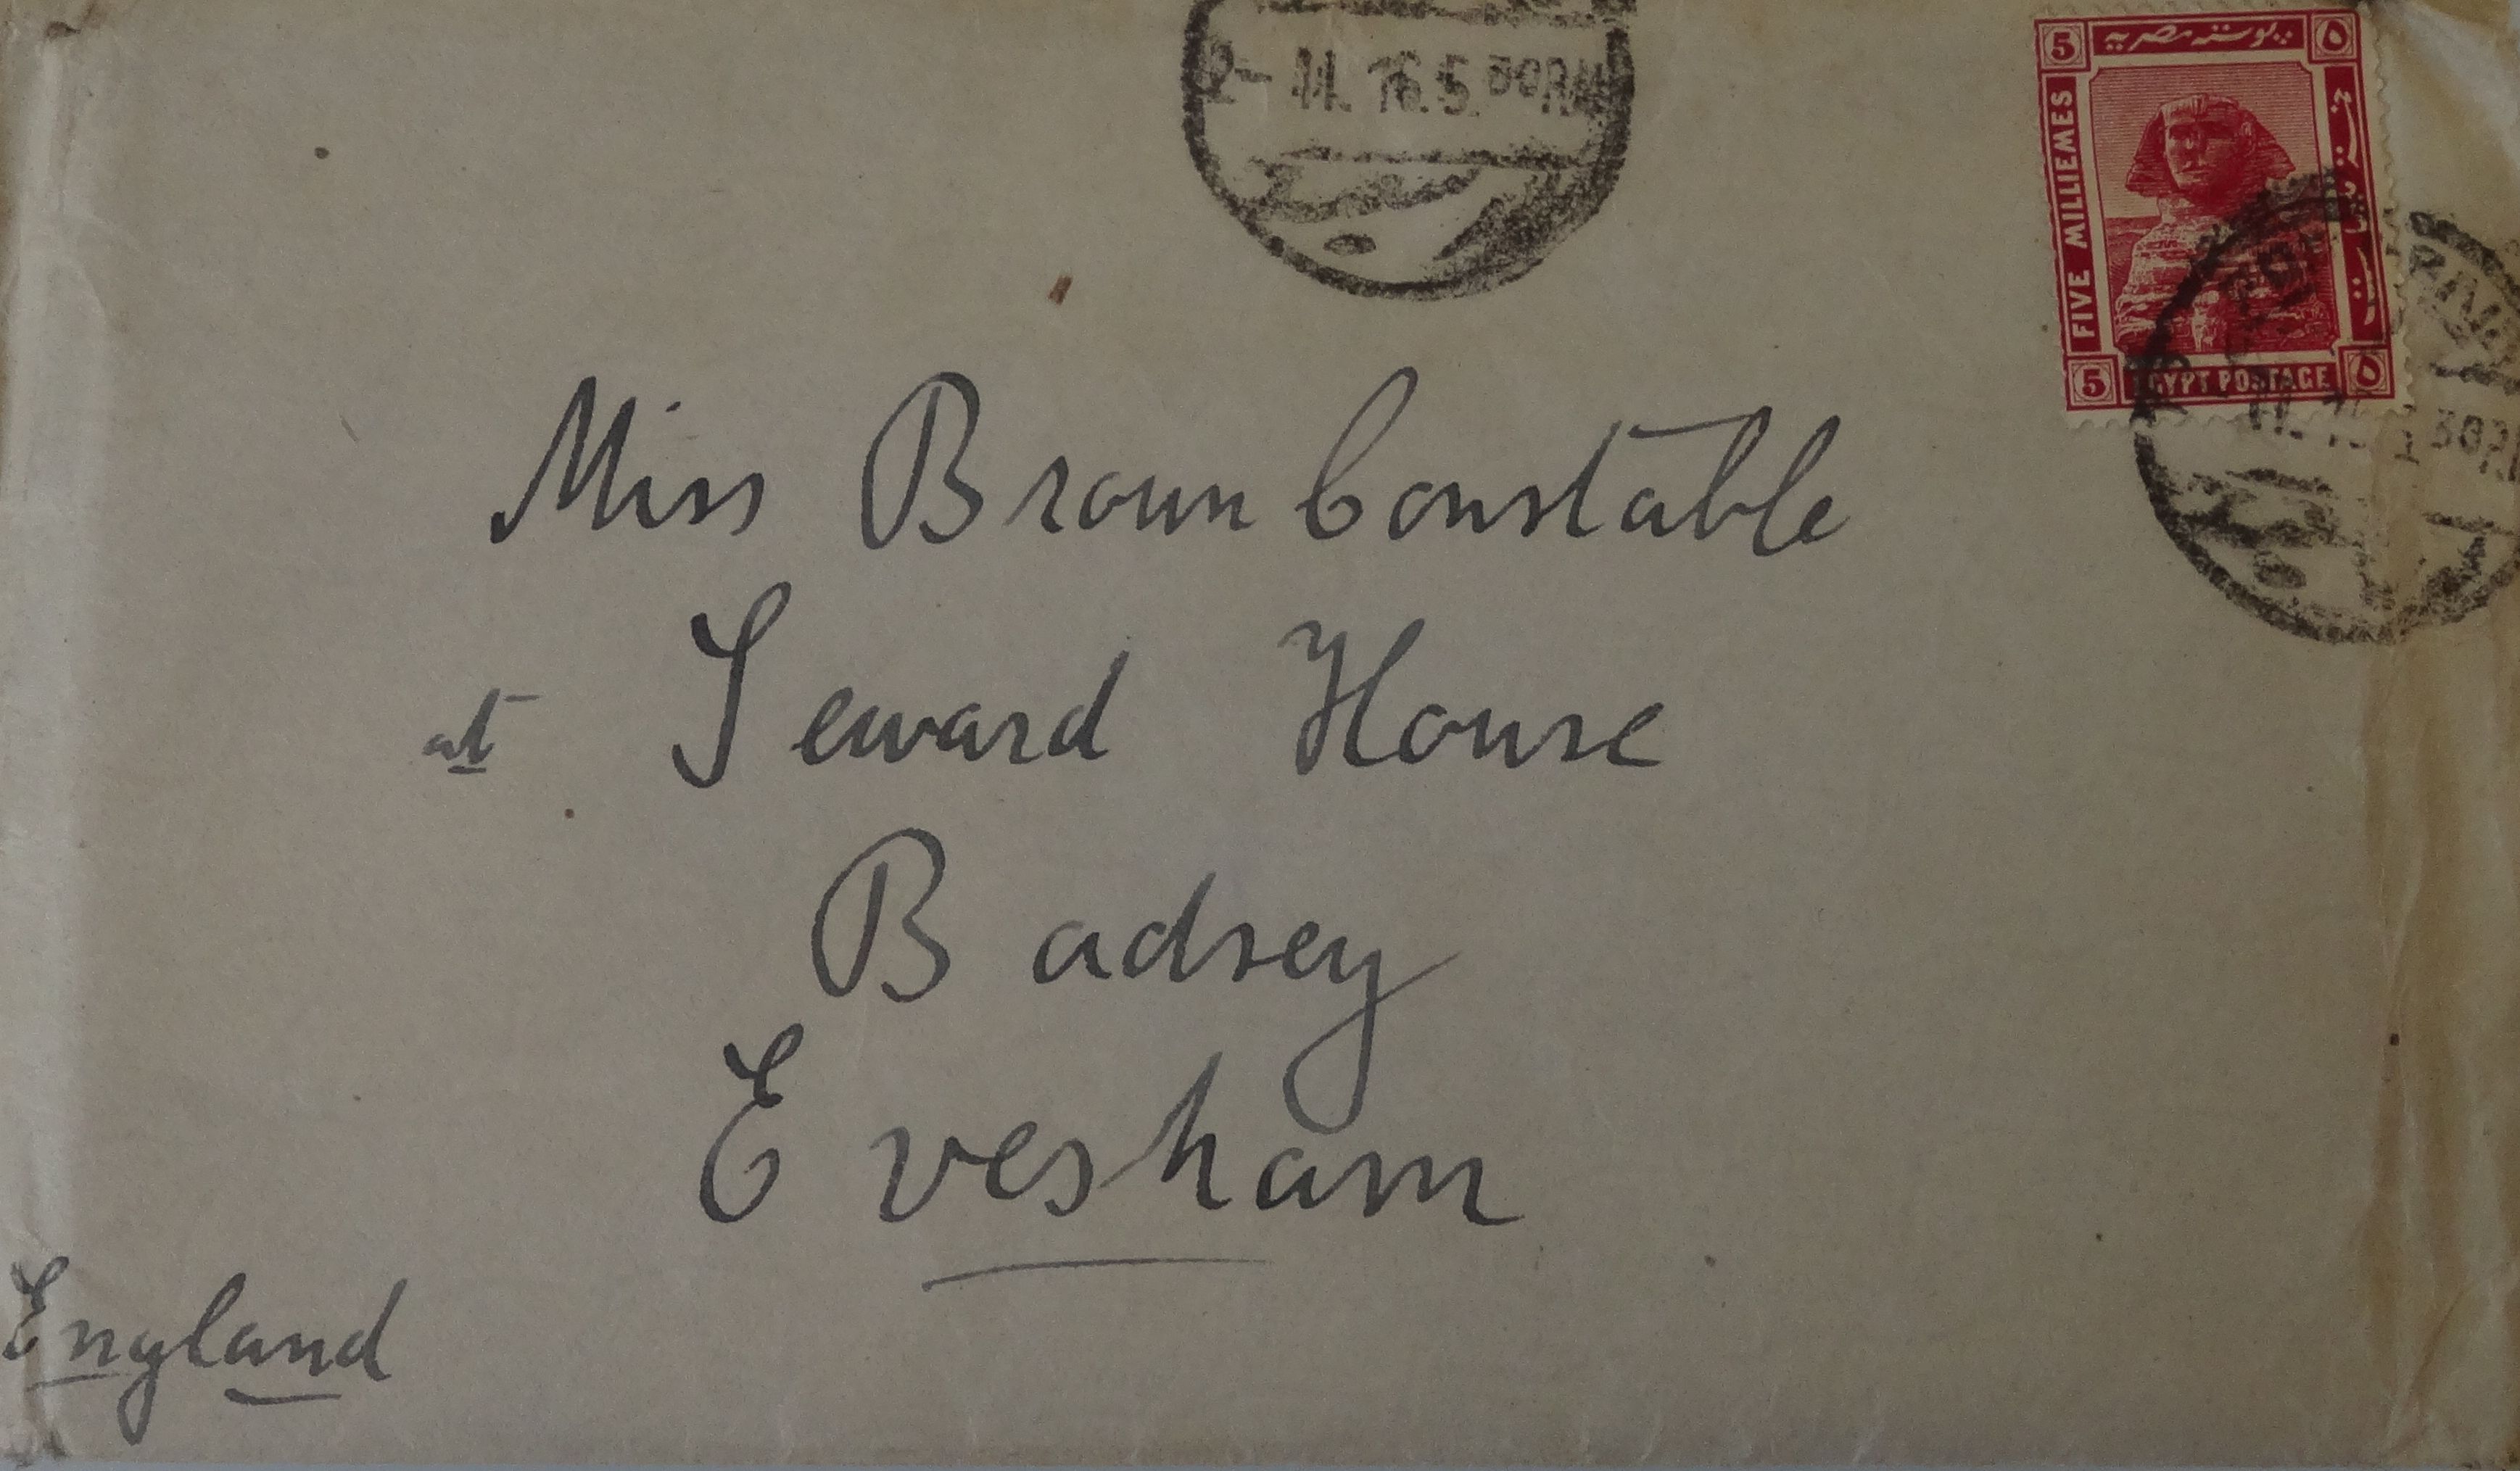 2- 11. 16. 5 30PM
5 بوستة مصرية ٥
FIVE MILLIEMES
5 EGYPT POSTAGE ٥
Miss Broun Constable
at Seward House
Badsey
Evesham
England